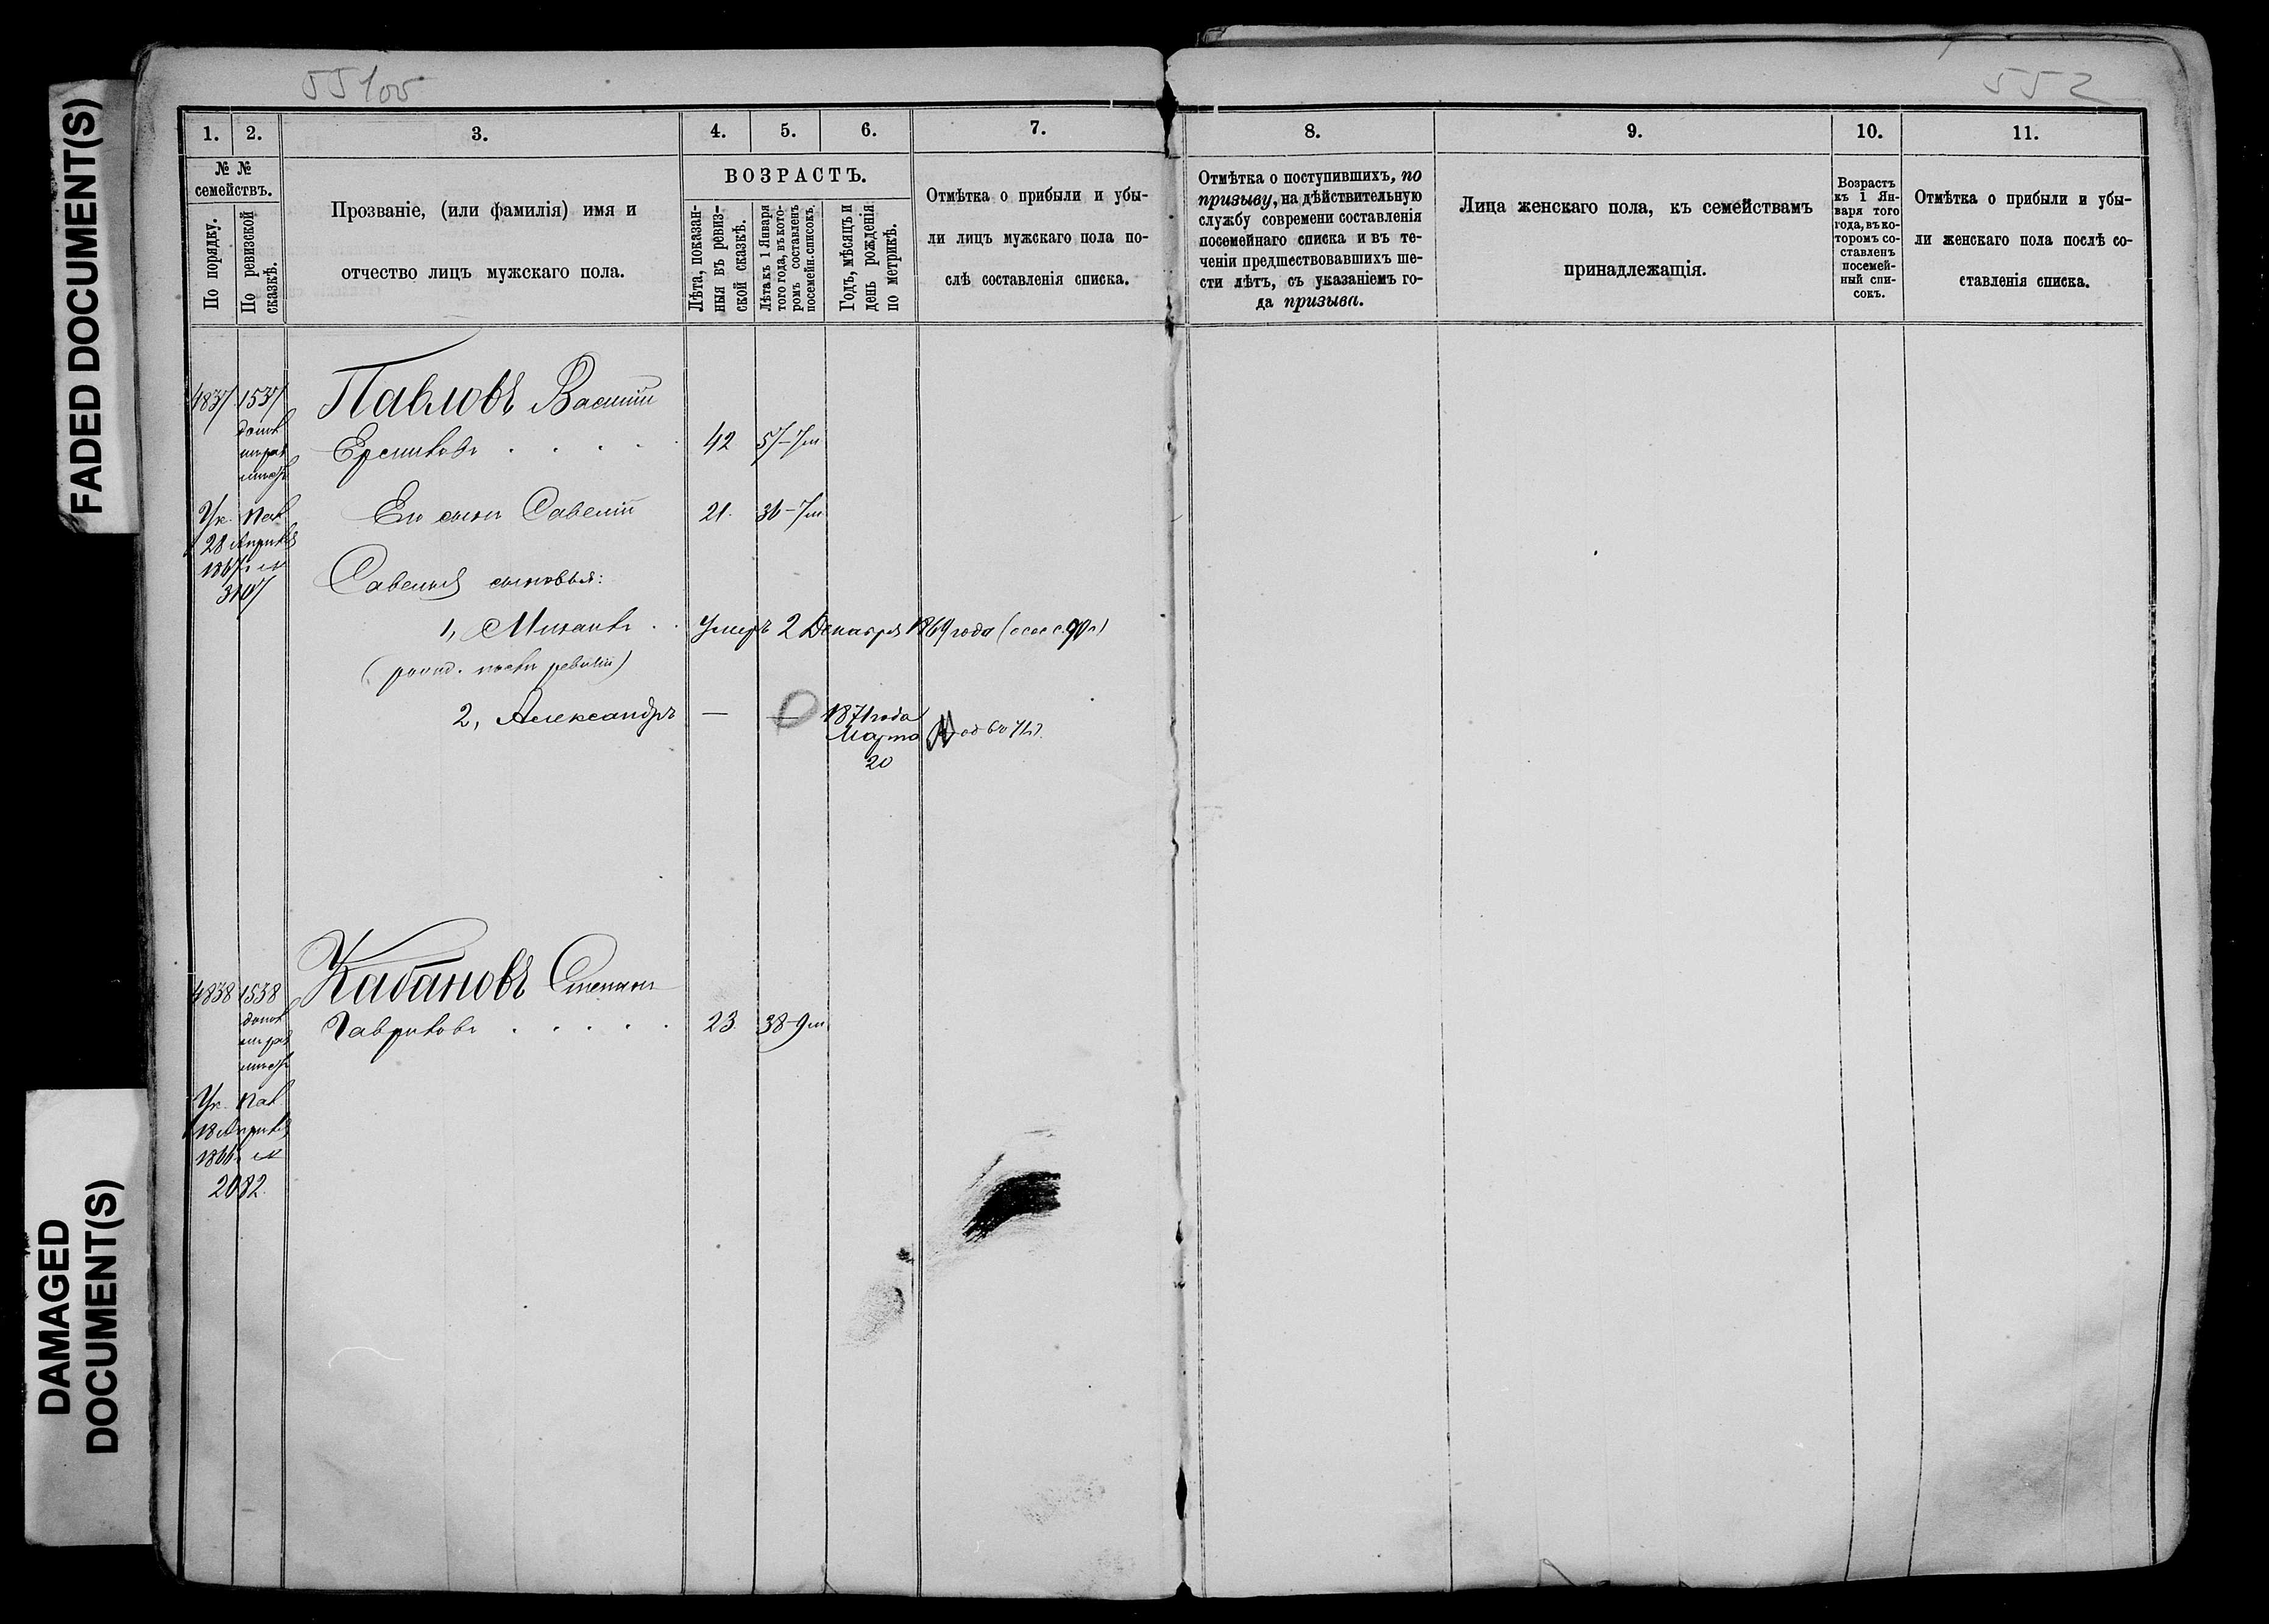 FADED DOCUMENT(S)
DAMAGED
DOCUMENT(S)
552
1.
2.
3.
4.
5.
6.
7.
8.
9.
10.
11.
№ №
семействъ.
По порядку.
По ревизской
сказкѣ.
Прозваніе, (или фамилія) имя и
отчество лицъ мужскаго пола.
ВОЗРАСТЪ.
Лѣта, показан-
ныя въ ревиз-
ской сказкѣ.
Лѣта къ 1 Января
того года, въ кото-
ромъ составленъ
посемейн. списокъ.
Годъ, мѣсяцъ и
день рожденія
по метрикѣ.
Отмѣтка о прибыли и убы-
ли лицъ мужскаго пола по-
слѣ составленія списка.
Отмѣтка о поступившихъ, по
призыву, на дѣйствительную
службу современи составленія
посемейнаго списка и въ те-
ченіи предшествовавшихъ ше-
сти лѣтъ, съ указаніемъ го-
да призыва.
Лица женскаго пола, къ семействамъ
принадлежащія.
Возрастъ
къ 1 Ян-
варя того
года, въ ко-
торомъ со-
ставленъ
посемей-
ный спи-
сокъ.
Отмѣтка о прибыли и убы-
ли женскаго пола послѣ со-
ставленія списка.
4837 1537 Павловъ Василій
Ермиловъ 42 57
Его сынъ Савелій 21. 36
Ук. Пал.
28 Апрѣля
1867 г. №
3107
Савелья сыновья:
1, Михаилъ Умеръ 2 Декабря 1869 года
(рожд. послѣ ревизіи)
2, Александръ — — 1871 года
Марта
20
4838 1538 Кабановъ Степанъ
Гавриловъ 23. 38
Ук. Пал.
18 Апрѣля
1866 г. №
2082.